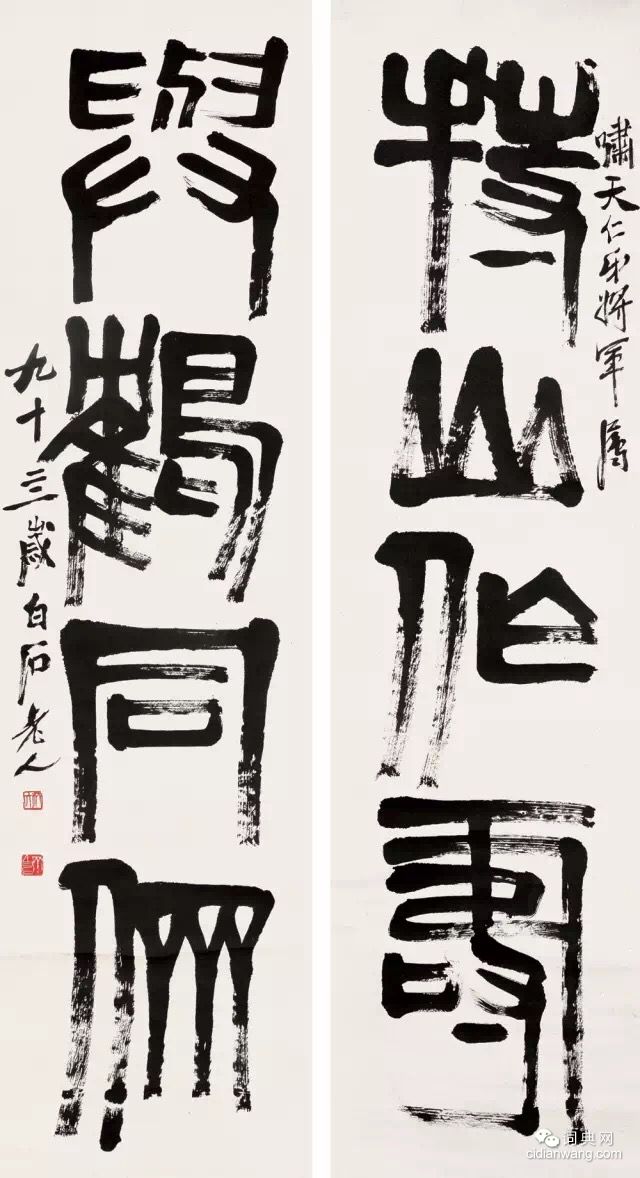 嘯天仁弟將軍屬
持山作壽
與鶴同
九十三歲白石老人
词典网
cidianwang.com